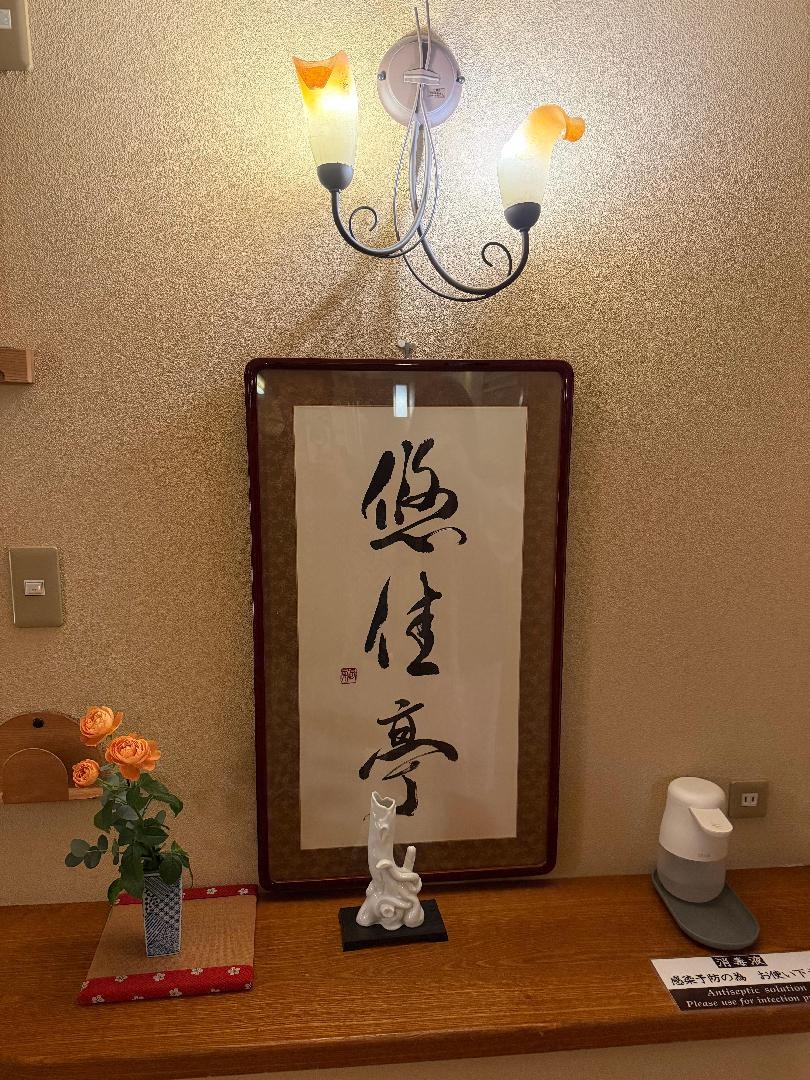 悠
佳
亭
消毒液
感染予防の為 お使い下
Antiseptic solution
Please use for infection p